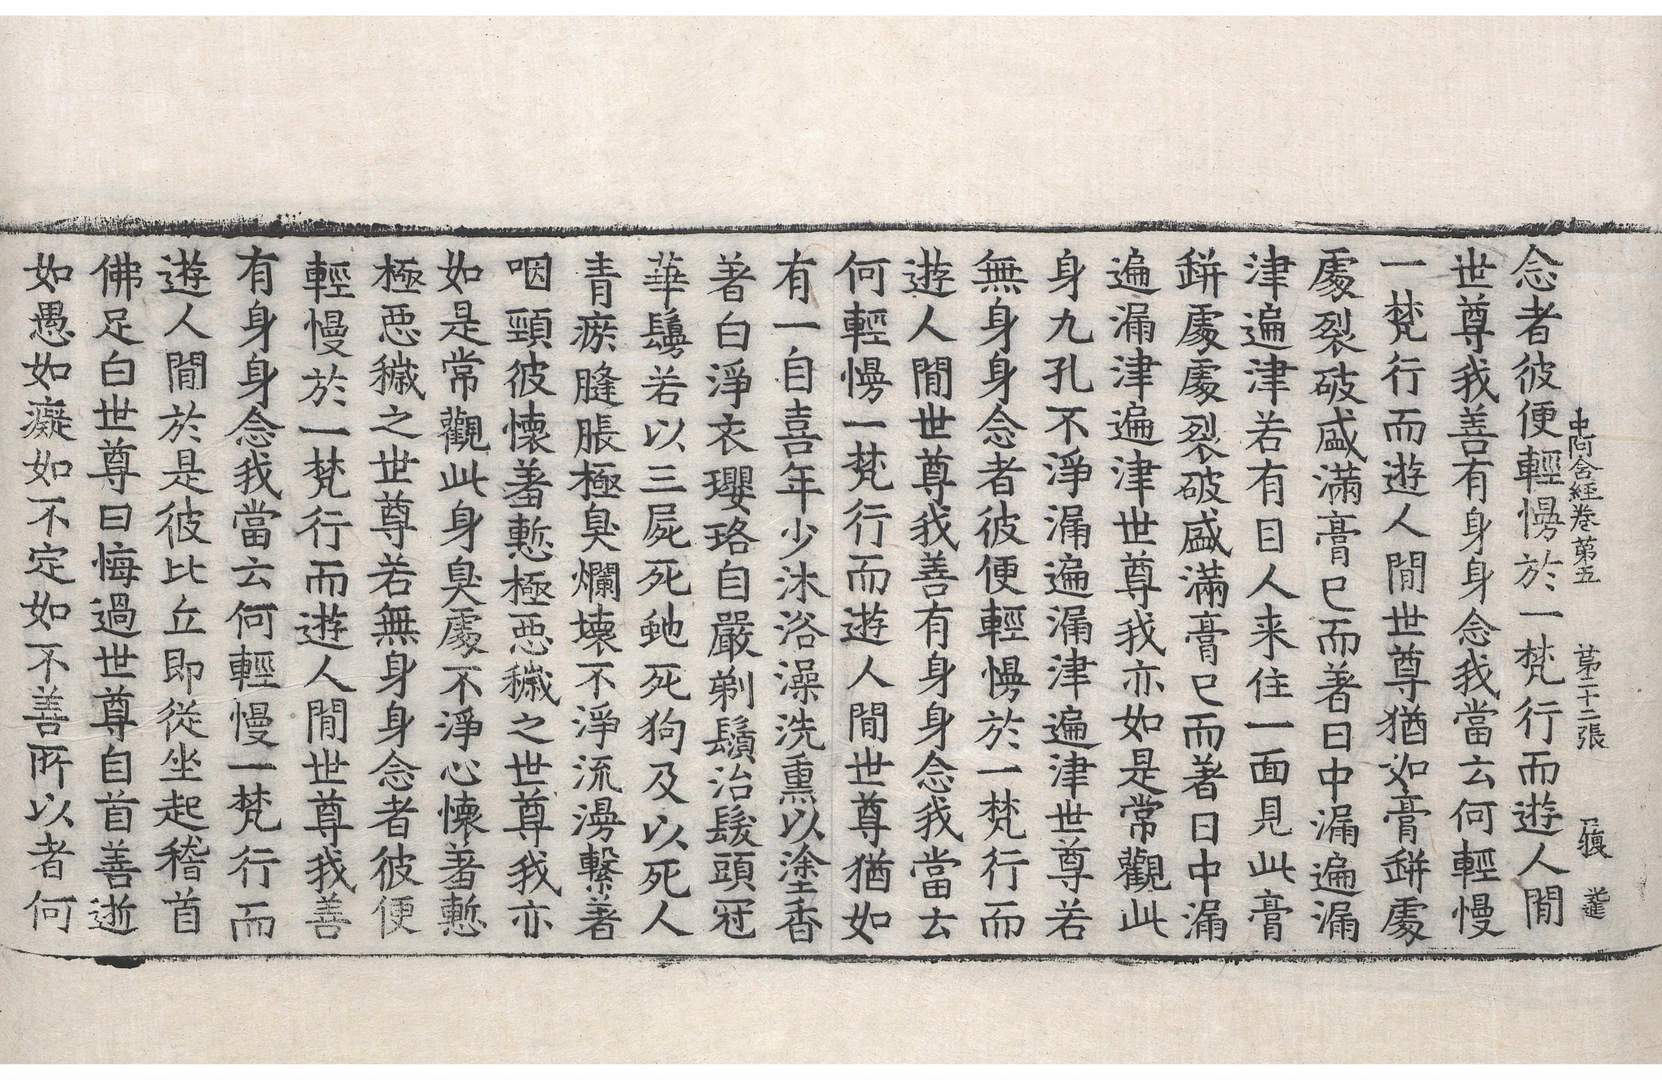 中阿含経卷第五 第二十二張 履
念者彼便輕慢於一梵行而遊人閒
世尊我善有身身念我當云何輕慢
一梵行而遊人閒世尊猶如膏缾處
處裂破盛滿膏已而著日中漏遍漏
津遍津若有目人来住一面見此膏
缾處處裂破盛滿膏已而著日中漏
遍漏津遍津世尊我亦如是常觀此
身九孔不淨漏遍漏津遍津世尊若
無身身念者彼便輕慢於一梵行而
遊人閒世尊我善有身身念我當云
何輕慢一梵行而遊人閒世尊猶如
有一自喜年少沐浴澡洗熏以塗香
著白淨衣瓔珞自嚴剃鬚治髮頭冠
華鬘若以三屍死虵死狗及以死人
青瘀膖脹極臭爛壊不淨流漫繫著
咽頸彼懷羞慙極惡穢之世尊我亦
如是常觀此身臭處不淨心懷羞慙
極惡穢之世尊若無身身念者彼便
輕慢於一梵行而遊人閒世尊我善
有身身念我當云何輕慢一梵行而
遊人閒於是彼比丘即從坐起稽首
佛足白世尊曰悔過世尊自首善逝
如愚如癡如不定如不善所以者何